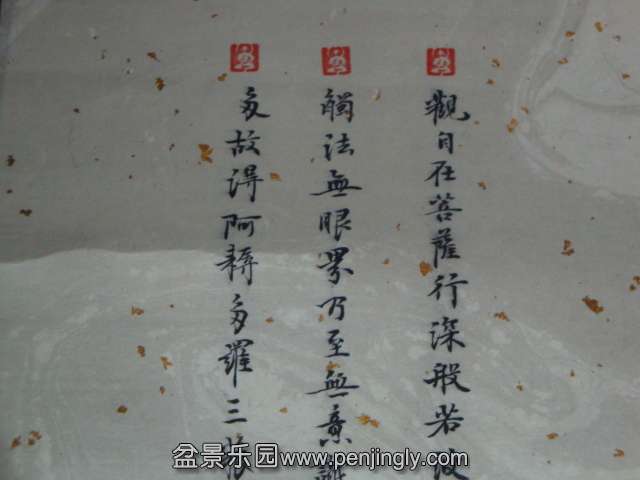 觀自在菩薩行深般若波
觸法無眼界乃至無意識
多故得阿耨多羅三藐
盆景乐园www.penjingly.com